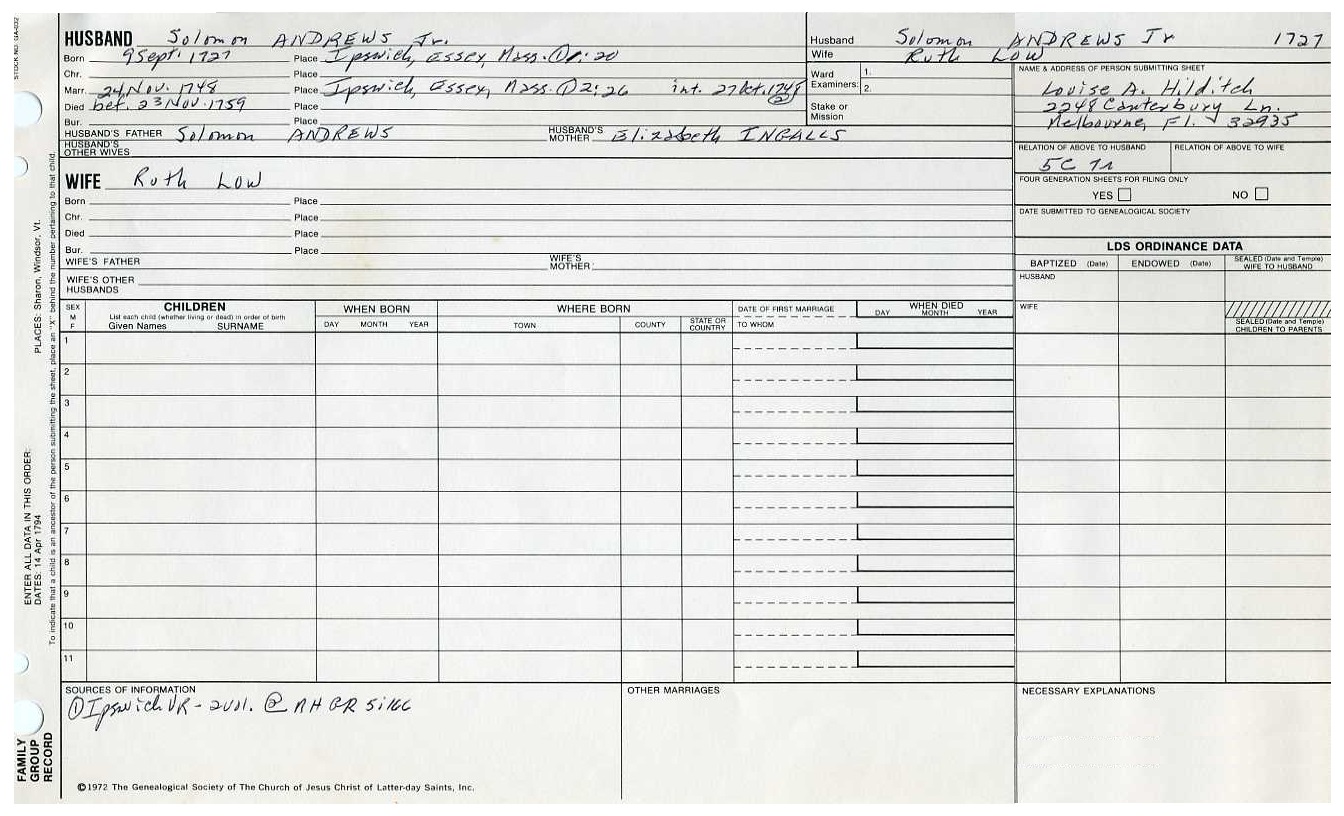 STOCK NO. GA-032
HUSBAND Solomon ANDREWS Jr.
Born 9 Sept. 1727 Place Ipswich, Essex, Mass. ① 1:20
Chr. Place
Marr. 24 Nov. 1748 Place Ipswich, Essex, Mass. ① 2:26 int. 27 Oct. 1748 ②
Died bef. 23 Nov. 1759 Place
Bur. Place
HUSBAND'S FATHER Solomon ANDREWS HUSBAND'S MOTHER Elizabeth INGALLS
HUSBAND'S OTHER WIVES
WIFE Ruth Low
Born Place
Chr. Place
Died Place
Bur. Place
WIFE'S FATHER WIFE'S MOTHER
WIFE'S OTHER HUSBANDS
Husband Solomon ANDREWS Jr 1727
Wife Ruth Low
Ward Examiners: 1.
2.
Stake or Mission
NAME & ADDRESS OF PERSON SUBMITTING SHEET
Louise A. Hilditch
2248 Canterbury Ln.
Melbourne, Fl. 32935
RELATION OF ABOVE TO HUSBAND RELATION OF ABOVE TO WIFE
5C 7r
FOUR GENERATION SHEETS FOR FILING ONLY
YES NO
DATE SUBMITTED TO GENEALOGICAL SOCIETY
LDS ORDINANCE DATA
BAPTIZED (Date) ENDOWED (Date) SEALED (Date and Temple) WIFE TO HUSBAND
HUSBAND
WIFE
SEALED (Date and Temple) CHILDREN TO PARENTS
SEX M F
CHILDREN
List each child (whether living or dead) in order of birth
Given Names SURNAME
WHEN BORN
DAY MONTH YEAR
WHERE BORN
TOWN COUNTY STATE OR COUNTRY
DATE OF FIRST MARRIAGE
TO WHOM
WHEN DIED
DAY MONTH YEAR
1
2
3
4
5
6
7
8
9
10
11
SOURCES OF INFORMATION
① Ipswich VR - 2 vol. ② NH GR 5:166
OTHER MARRIAGES
NECESSARY EXPLANATIONS
©1972 The Genealogical Society of The Church of Jesus Christ of Latter-day Saints, Inc.
FAMILY GROUP RECORD
ENTER ALL DATA IN THIS ORDER:
DATES: 14 Apr 1794
PLACES: Sharon, Windsor, Vt.
To indicate that a child is an ancestor of the person submitting the sheet, place an "X" behind the number pertaining to that child.